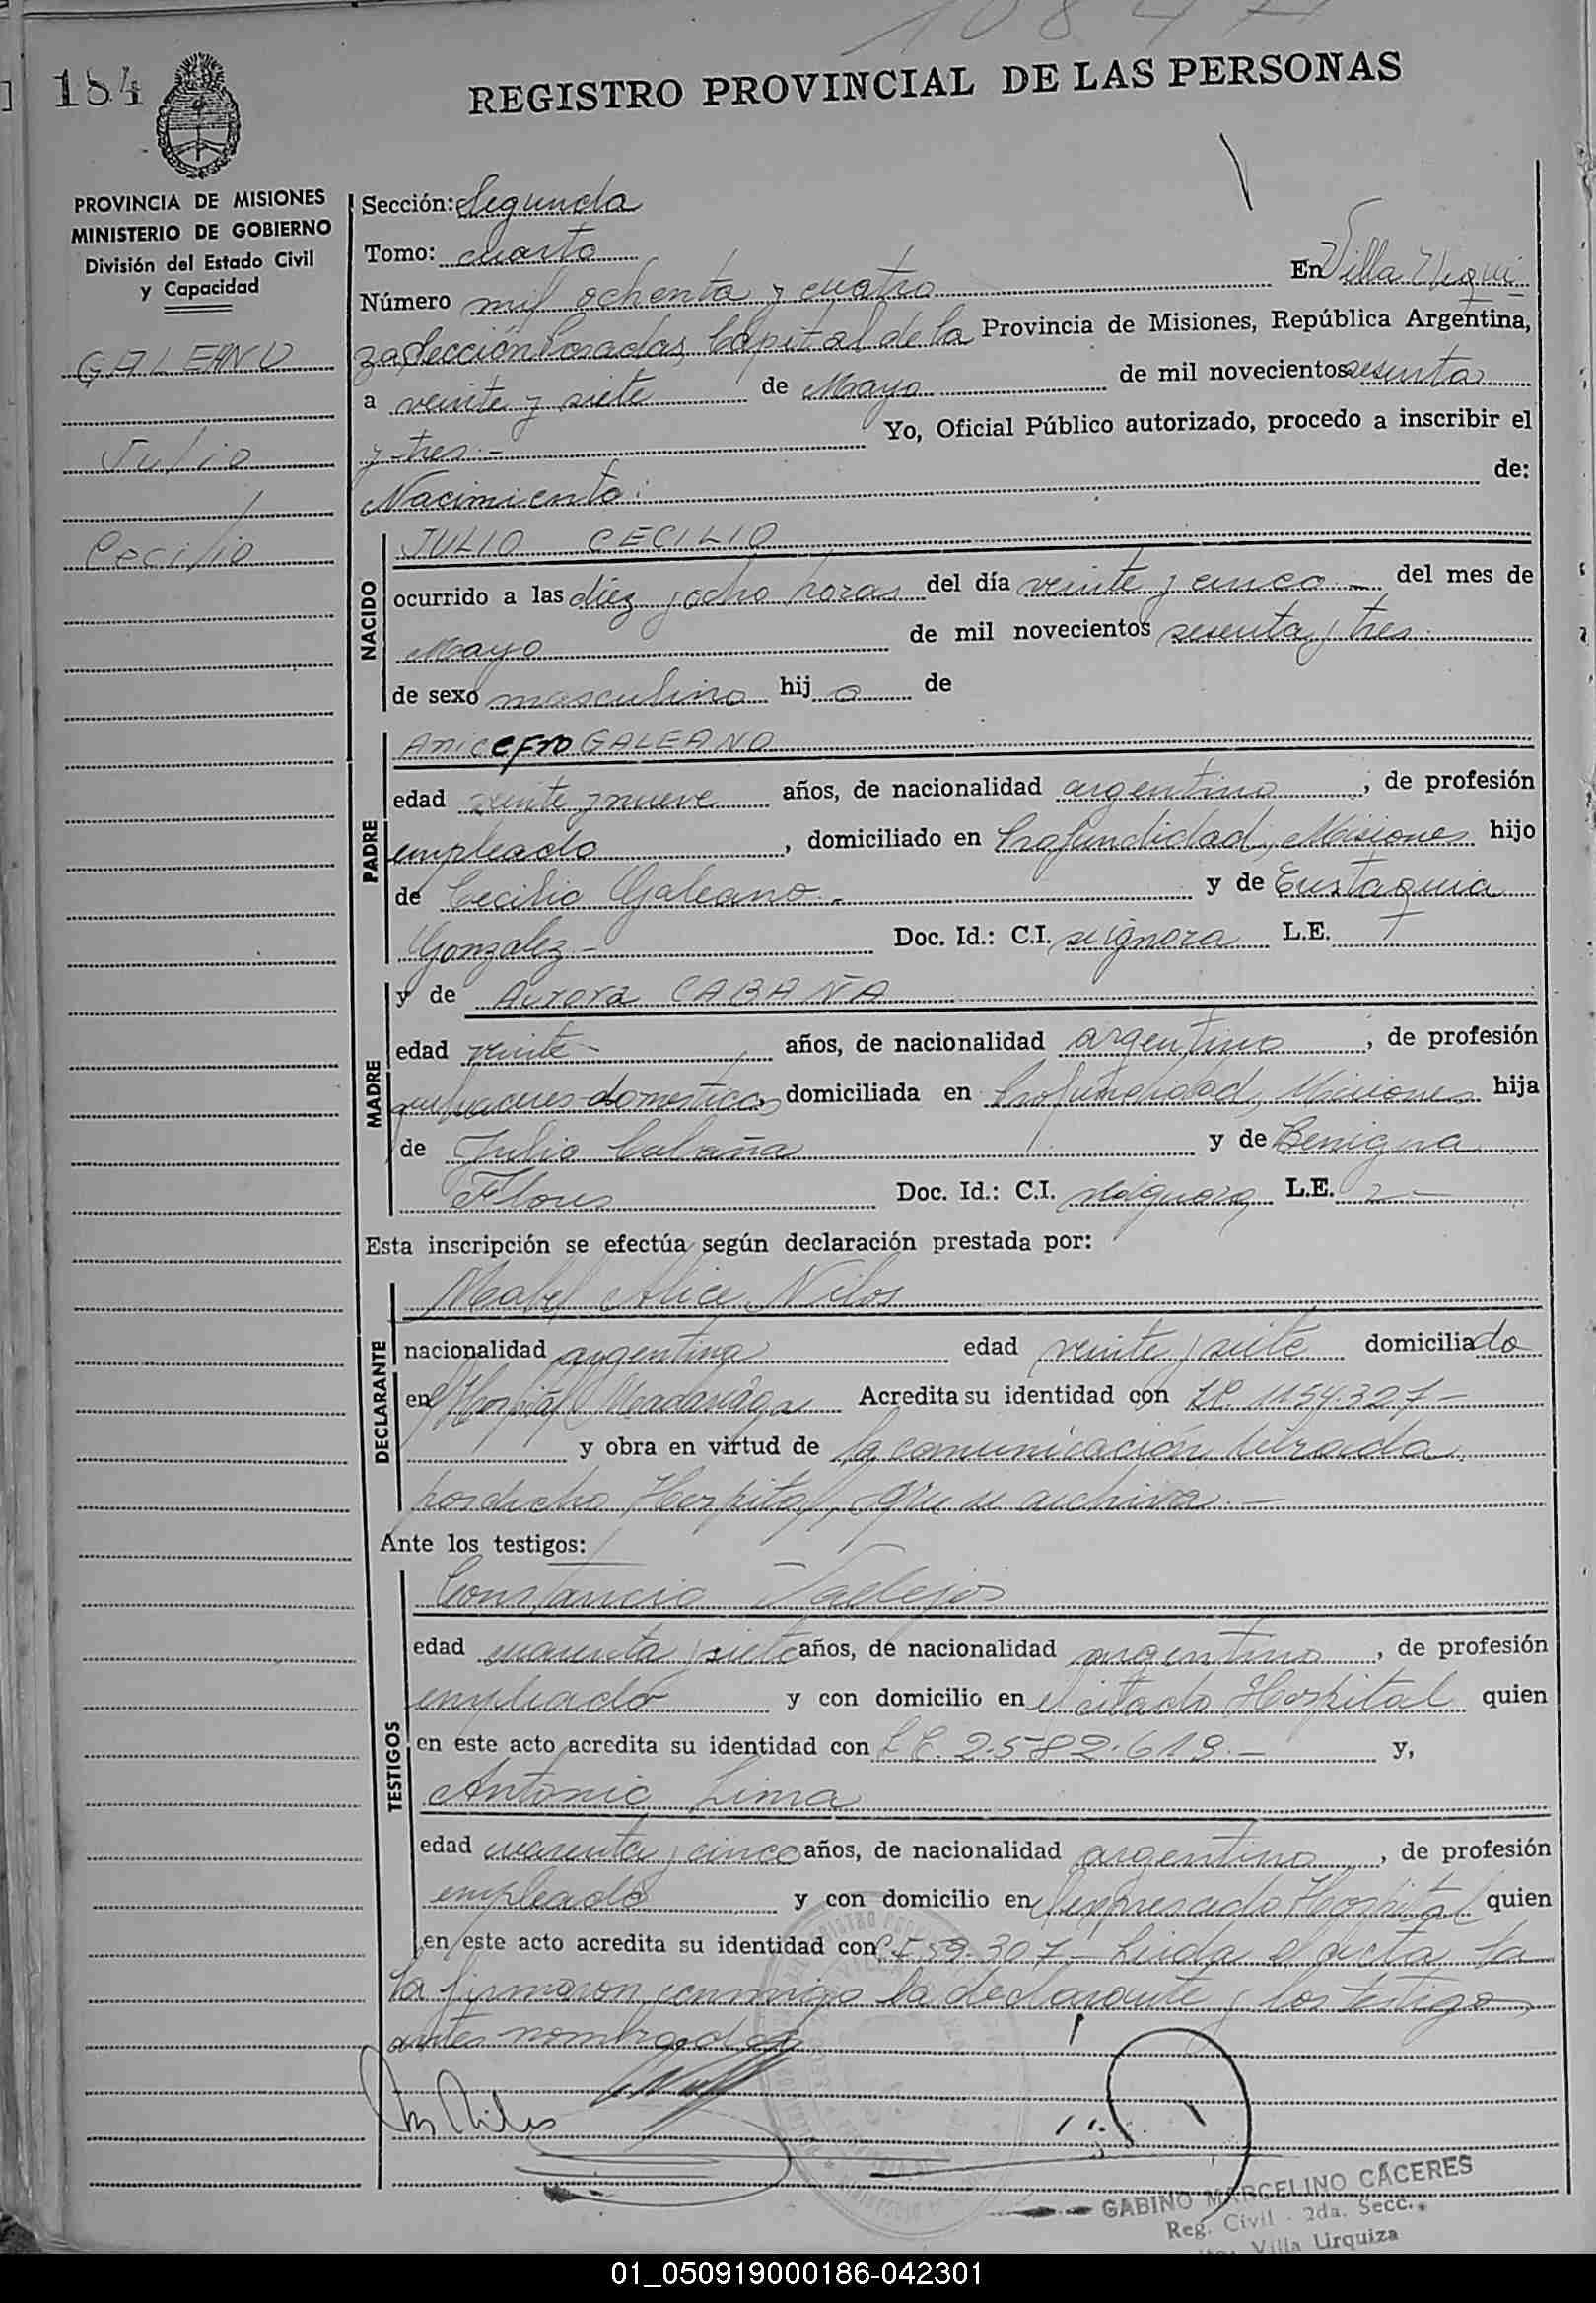 1084
184
REGISTRO PROVINCIAL DE LAS PERSONAS
PROVINCIA DE MISIONES
MINISTERIO DE GOBIERNO
División del Estado Civil
y Capacidad
GALEANO
Julio
Cecilio
Sección: Segunda
Tomo: cuarto
Número mil ochenta y cuatro En Villa Urqui
za Sección Posadas, Capital de la Provincia de Misiones, República Argentina,
a veinte y siete de Mayo de mil novecientos sesenta
y tres.- Yo, Oficial Público autorizado, procedo a inscribir el
Nacimiento: de:
NACIDO
JULIO CECILIO
ocurrido a las diez y ocho horas del día veinte y cinco - del mes de
Mayo de mil novecientos sesenta y tres.
de sexo masculino hijo de
PADRE
Anicefro GALEANO
edad veinte y nueve años, de nacionalidad argentino, de profesión
empleado, domiciliado en Profundidad, Misiones hijo
de Cecilio Galeano.- y de Eustaquia
Gonzalez - Doc. Id.: C.I. se ignora L.E.
MADRE
y de Aurora CABAÑA
edad veinte - años, de nacionalidad argentina, de profesión
quehaceres domesticos, domiciliada en Profundidad, Misiones hija
de Julio Cabaña y de Benigna
Flores Doc. Id.: C.I. se ignora L.E.
Esta inscripción se efectúa según declaración prestada por:
DECLARANTE
Mabel Alice Nilos
nacionalidad argentina edad veinte y siete domiciliado
en Hospital Madariaga Acredita su identidad con L.C. 1154.327-
y obra en virtud de la comunicación librada
por dicho Hospital, que se archiva.-
Ante los testigos:
TESTIGOS
Constancio Vallejos
edad cuarenta y siete años, de nacionalidad argentino, de profesión
empleado y con domicilio en el citado Hospital quien
en este acto acredita su identidad con L.E. 2.582.619.- y,
Antonio Lima
edad cuarenta y cinco años, de nacionalidad argentino, de profesión
empleado y con domicilio en el expresado Hospital quien
en este acto acredita su identidad con C.I. 59.307- Leida el acta la
la firmaron conmigo la declarante y los testigos
antes nombrados
GABINO MARCELINO CÁCERES
Reg. Civil - 2da. Secc.
Villa Urquiza
01_050919000186-042301